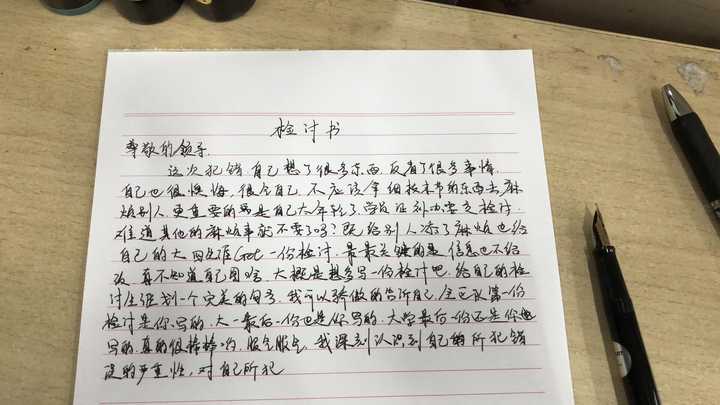 检讨书
尊敬的领导
这次犯错,自己想了很多东西,反省了很多事情,
自己也很懊悔,很气自己,不应该拿细枝末节的东西去麻
烦别人,更重要的是自己大年轻了,学员证补办要交检讨,
难道其他的麻烦事就不要了吗?既给别人添了麻烦也给
自己的大四生涯Get一份检讨,最最关键的是信息也不给
改,真不知道自己图啥,大概是想多写一份检讨吧,给自己的检
讨生涯划一个完美的句号,我可以骄傲的告诉自己,全区队第一份
检讨是你写的,大一最后一份也是你写的,大学最后一份还是你
写的,真的很棒棒哟,服气服气,我深刻认识到自己的所犯错
误的严重性,对自己所犯